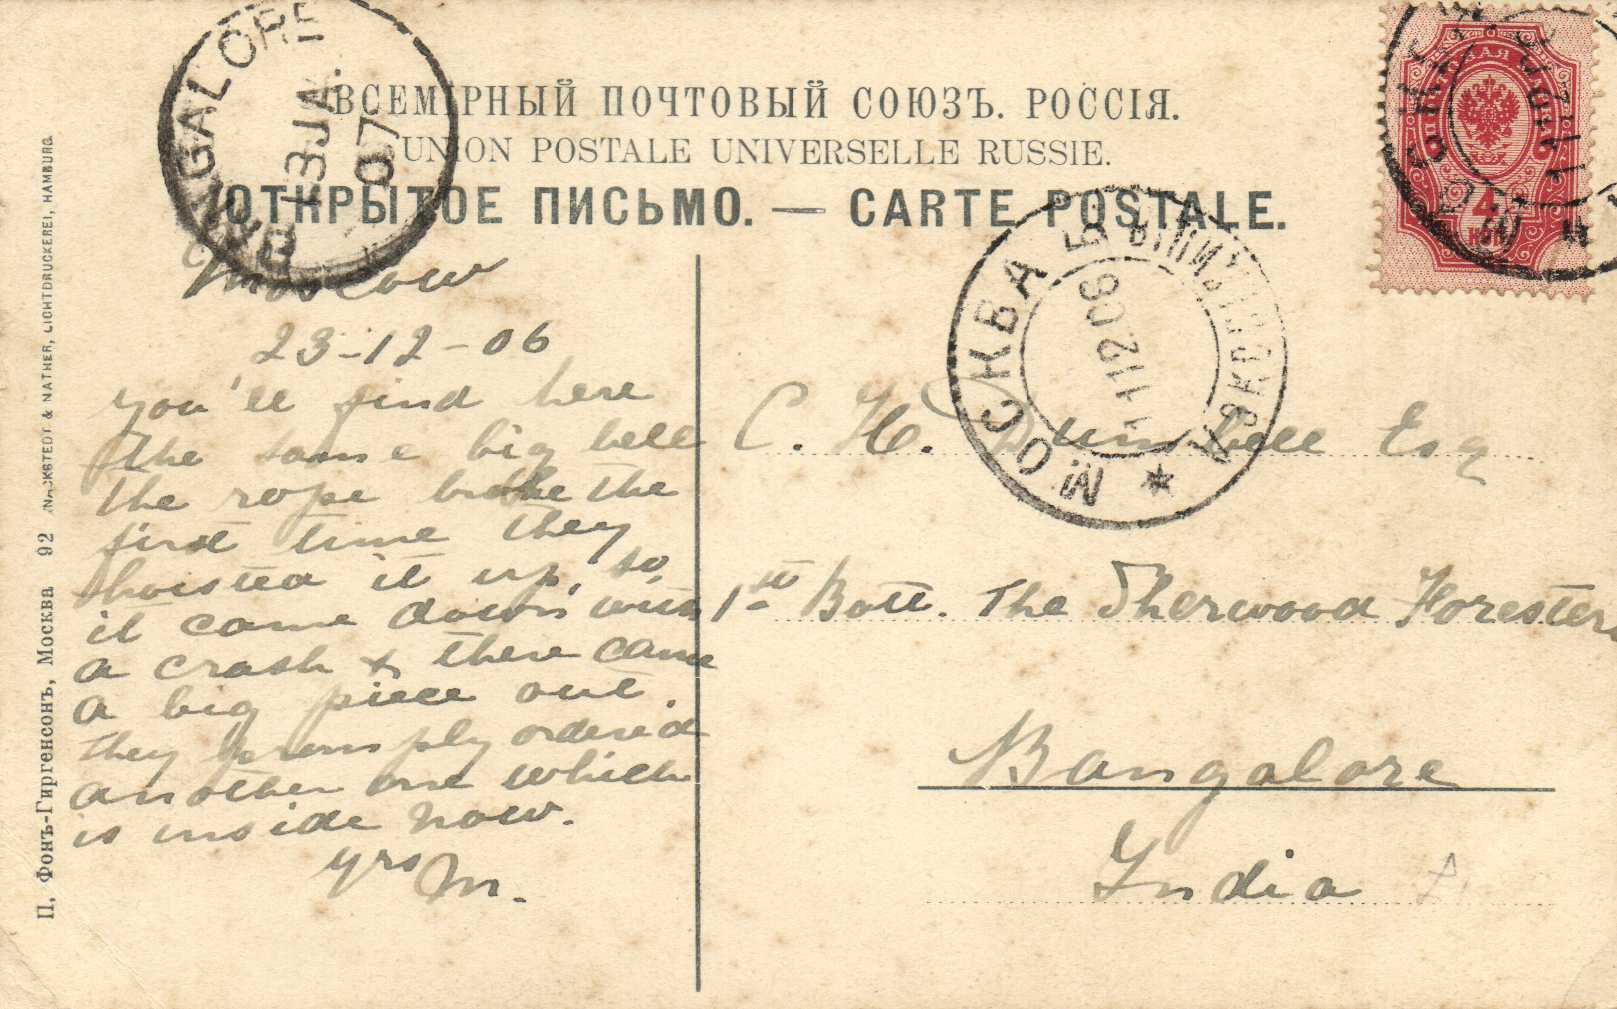 ВСЕМІРНЫЙ ПОЧТОВЫЙ СОЮЗЪ. РОССІЯ.
UNION POSTALE UNIVERSELLE RUSSIE.
ОТКРЫТОЕ ПИСЬМО. — CARTE POSTALE.
BANGALORE
13 JA.
07
МОСКВА
11 12 06
4
КОП
Moscow
23-12-06
you'll find here
the same big bell
the rope broke the
first time they
hoisted it up, so
it came down with
a crash & there came
a big piece out.
They promply ordered
another one which
is inside now.
yrs M.
C. H. Dumbell Esq
1st Batt. The Sherwood Foresters
Bangalore
India
П. Фонъ-Гиргенсонъ, Москва 92 KNACKSTEDT & NÄTHER, LICHTDRUCKEREI, HAMBURG